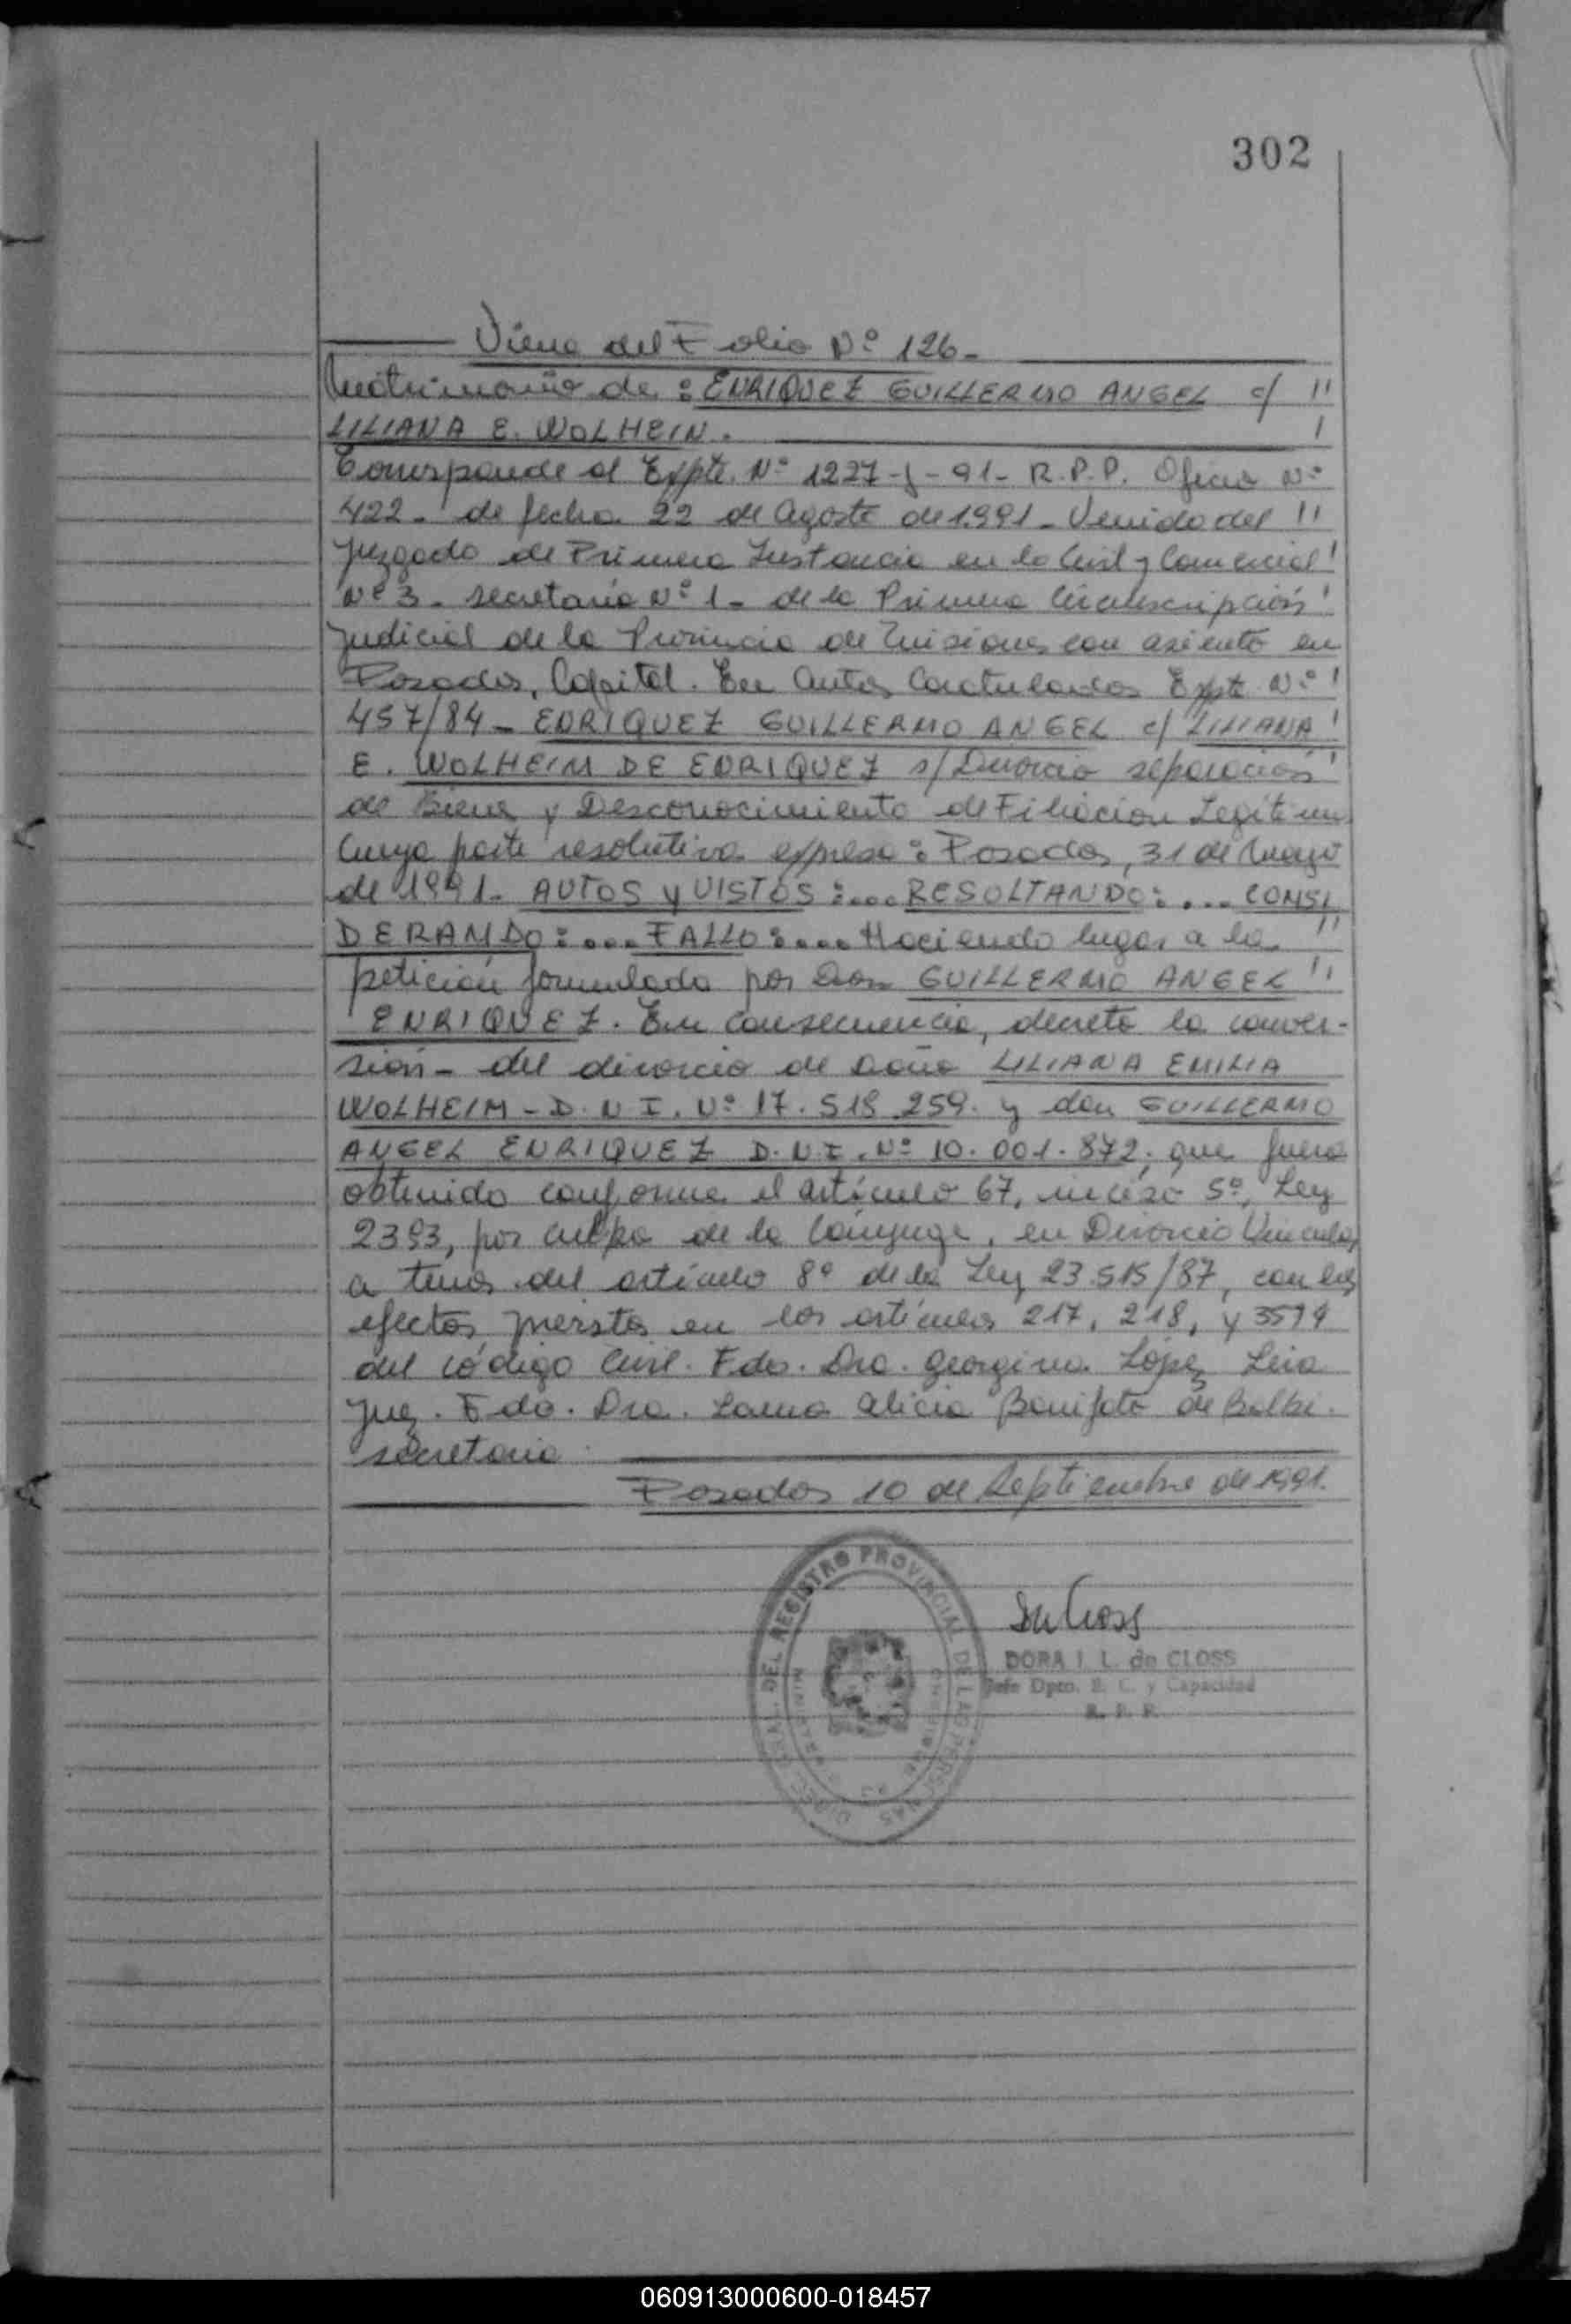 302
Viene del Folio Nº 126-
Matrimonio de: ENRIQUEZ GUILLERMO ANGEL c/ "
LILIANA E. WOLHEIN. /
Corresponde al Expte. Nº 1227-J-91- R.P.P. Oficio Nº
422- de fecha 22 de Agosto de 1.991- Venido del "
Juzgado de Primera Instancia en lo Civil y Comercial '
Nº 3- secretaría Nº 1- de la Primera Circunscripción '
Judicial de la Provincia de Misiones con asiento en
Posadas, Capital. En Autos Caratulados Expte. Nº '
457/84- ENRIQUEZ GUILLERMO ANGEL c/ LILIANA '
E. WOLHEIM DE ENRIQUEZ s/ Divorcio separación '
de Bienes y Desconocimiento de Filiación Legítima
Cuya parte resolutiva expresa: Posadas, 31 de Mayo
de 1991- AUTOS y VISTOS:... RESULTANDO:... CONSI
DERANDO:... FALLO:... Haciendo lugar a la "
petición formulada por Don GUILLERMO ANGEL "
ENRIQUEZ. En consecuencia, decreto la conver-
sión- del divorcio de doña LILIANA EMILIA
WOLHEIM- D.N.I. Nº 17.518.259. y don GUILLERMO
ANGEL ENRIQUEZ D.N.I. Nº 10.001.872; que fuera
obtenido conforme el artículo 67, inciso 5º, Ley
2393, por culpa de la Cónyuge, en Divorcio Vincular,
a tenor del artículo 8º de la Ley 23.515/87, con los
efectos previstos en los artículos 217, 218, y 3574
del código Civil. Fdo. Dra. Georgina López Leiva
Juez. Fdo. Dra. Laura Alicia Bonifato de Balbi.
secretaria.
Posadas 10 de Septiembre de 1991.
DIREC. GRAL. DEL REGISTRO PROVINCIAL DE LAS PERSONAS
DORA I. L. de CLOSS
Jefe Dpto. E. C. y Capacidad
R. P. P.
060913000600-018457